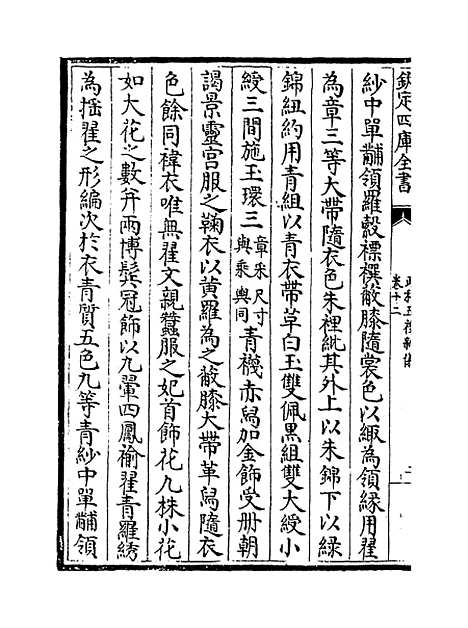 欽定四庫全書
政和五禮新儀
卷十二
二
紗中單黼領羅縠褾襈蔽膝隨裳色以緅為領縁用翟
為章三等大帶隨衣色朱裡紕其外上以朱錦下以緑
錦紐約用青組以青衣帶草白玉雙佩黒組雙大綬小
綬三間施玉環三
章采尺寸
與乘輿同
青襪赤舄加金飾受册朝
謁景靈宫服之鞠衣以黄羅為之蔽膝大帶革舄隨衣
色餘同褘衣唯無翟文親蠶服之妃首飾花九株小花
如大花之數并兩博髩冠飾以九翬四鳳褕翟青羅綉
為揺翟之形編次於衣青質五色九等青紗中單黼領